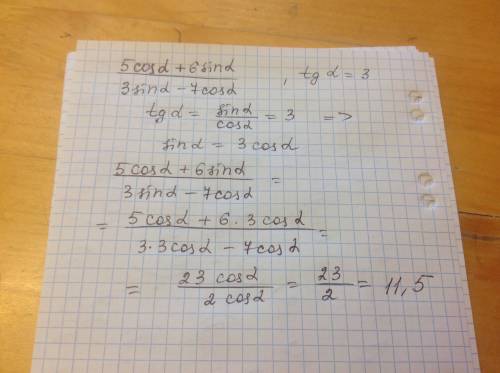 5cosα + 6sinα / 3sinα − 7cosα , tgα = 3
tgα = sinα / cosα = 3 =>
sinα = 3 cosα
5cosα + 6sinα / 3sinα − 7cosα =
= 5cosα + 6 · 3cosα / 3·3cosα − 7cosα =
= 23 cosα / 2 cosα = 23 / 2 = 11,5